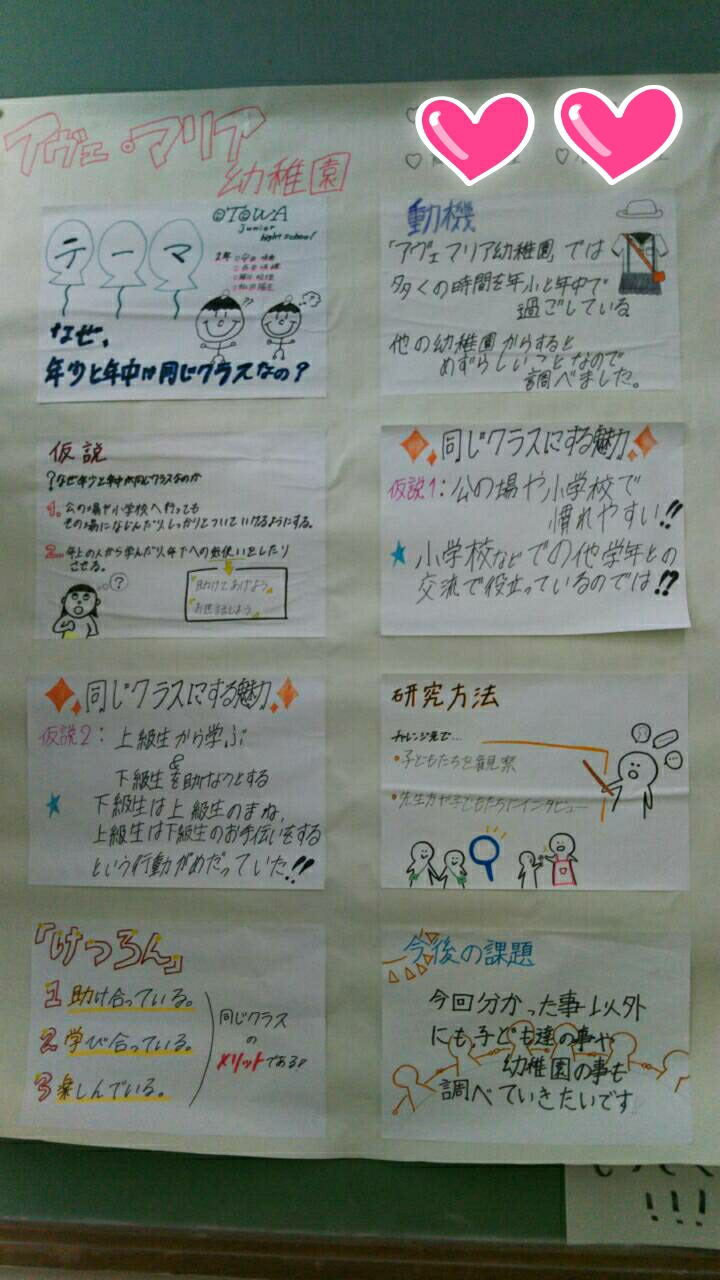 アヴェ・マリア
幼稚園
テーマ
OTOWA
Junior
hight school
2年
なぜ、
年少と年中は同じクラスなの?
動機
「アヴェマリア幼稚園」では
多くの時間を年少と年中で
過ごしている。
他の幼稚園からすると
めずらしいことなので
調べました。
仮説
?なぜ年少と年中が同じクラスなのか
1.公の場や小学校へ行っても
その場になじんだり、しっかりとついていけるようにする。
2.年上の人から学んだり、年下への気使いをしたり
させる。
助けてあげよう
お世話しよう
?
同じクラスにする魅力
仮説1:公の場や小学校で
慣れやすい!!
★小学校などでの他学年との
交流で役立っているのでは!?
同じクラスにする魅力
仮説2:上級生から学ぶ
&
下級生を助けなっとする
★下級生は上級生のまね、
上級生は下級生のお手伝いをする
という行動がめだっていた!!
研究方法
チャレンジ先で…
・子どもたちを観察
・先生方や子どもたちにインタビュー
「けつろん」
1 助け合っている。
2 学び合っている。
3 楽しんでいる。
同じクラス
の
メリットである!
今後の課題
今回分かった事以外
にも、子ども達の事や
幼稚園の事も
調べていきたいです
!!!